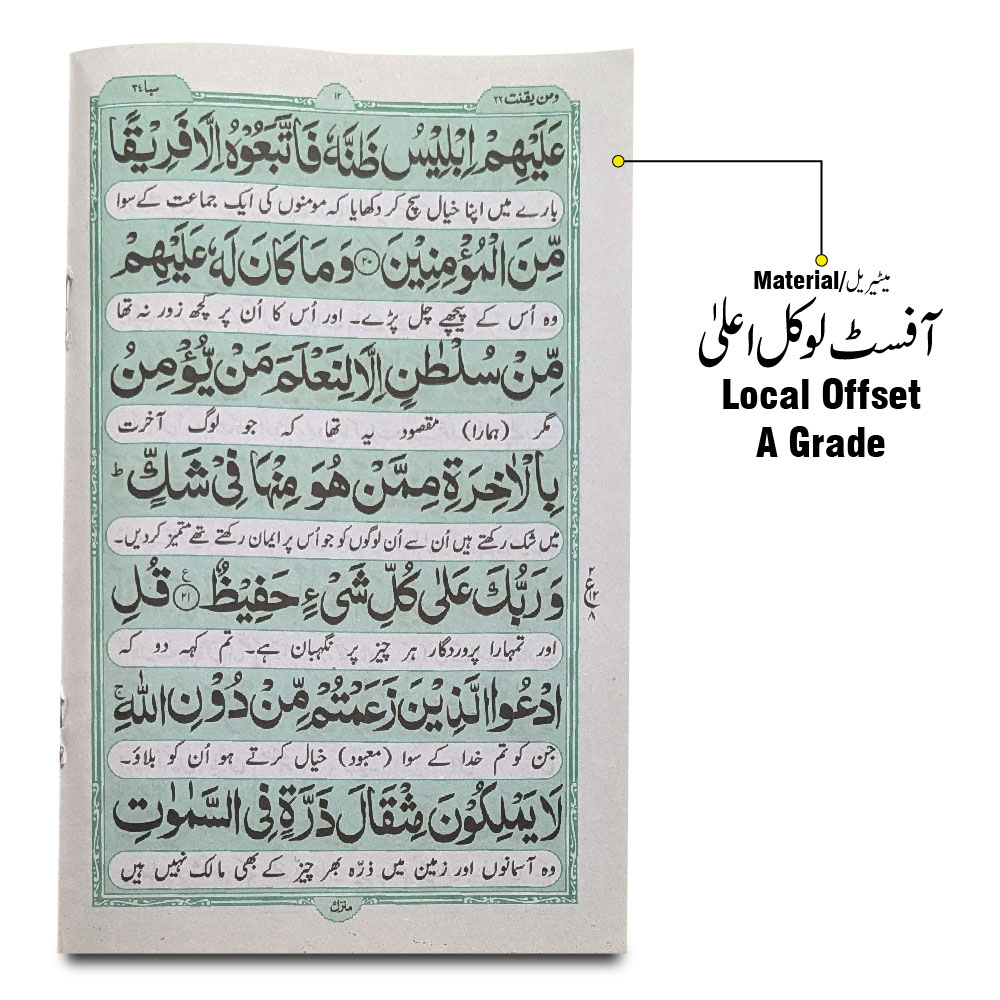 ومن يقنت ٢٢
١٢
سبا ٣٤
عَلَيْهِمْ اِبْلِيْسُ ظَنَّهٗ فَاتَّبَعُوْهُ اِلَّا فَرِيْقًا
بارے میں اپنا خیال سچ کر دکھایا کہ مومنوں کی ایک جماعت کے سوا
مِّنَ الْمُؤْمِنِيْنَ ﴿٢٠﴾ وَمَا كَانَ لَهٗ عَلَيْهِمْ
وہ اُس کے پیچھے چل پڑے۔ اور اُس کا اُن پر کچھ زور نہ تھا
مِّنْ سُلْطٰنٍ اِلَّا لِنَعْلَمَ مَنْ يُّؤْمِنُ
مگر (ہمارا) مقصود یہ تھا کہ جو لوگ آخرت
بِالْاٰخِرَةِ مِمَّنْ هُوَ مِنْهَا فِيْ شَكٍّ ؕ
میں شک رکھتے ہیں اُن سے اُن لوگوں کو جو اُس پر ایمان رکھتے تھے متمیز کردیں۔
وَرَبُّكَ عَلٰى كُلِّ شَيْءٍ حَفِيْظٌ ﴿٢١﴾ ع قُلِ
٢
ع ١٢
٨
اور تمہارا پروردگار ہر چیز پر نگہبان ہے۔ تم کہہ دو کہ
ادْعُوا الَّذِيْنَ زَعَمْتُمْ مِّنْ دُوْنِ اللّٰهِ ۚ
جن کو تم خدا کے سوا (معبود) خیال کرتے ہو اُن کو بلاؤ۔
لَا يَمْلِكُوْنَ مِثْقَالَ ذَرَّةٍ فِي السَّمٰوٰتِ
وہ آسمانوں اور زمین میں ذرّہ بھر چیز کے بھی مالک نہیں ہیں
منزل
Material/میٹیریل
آفسٹ لوکل اعلیٰ
Local Offset
A Grade